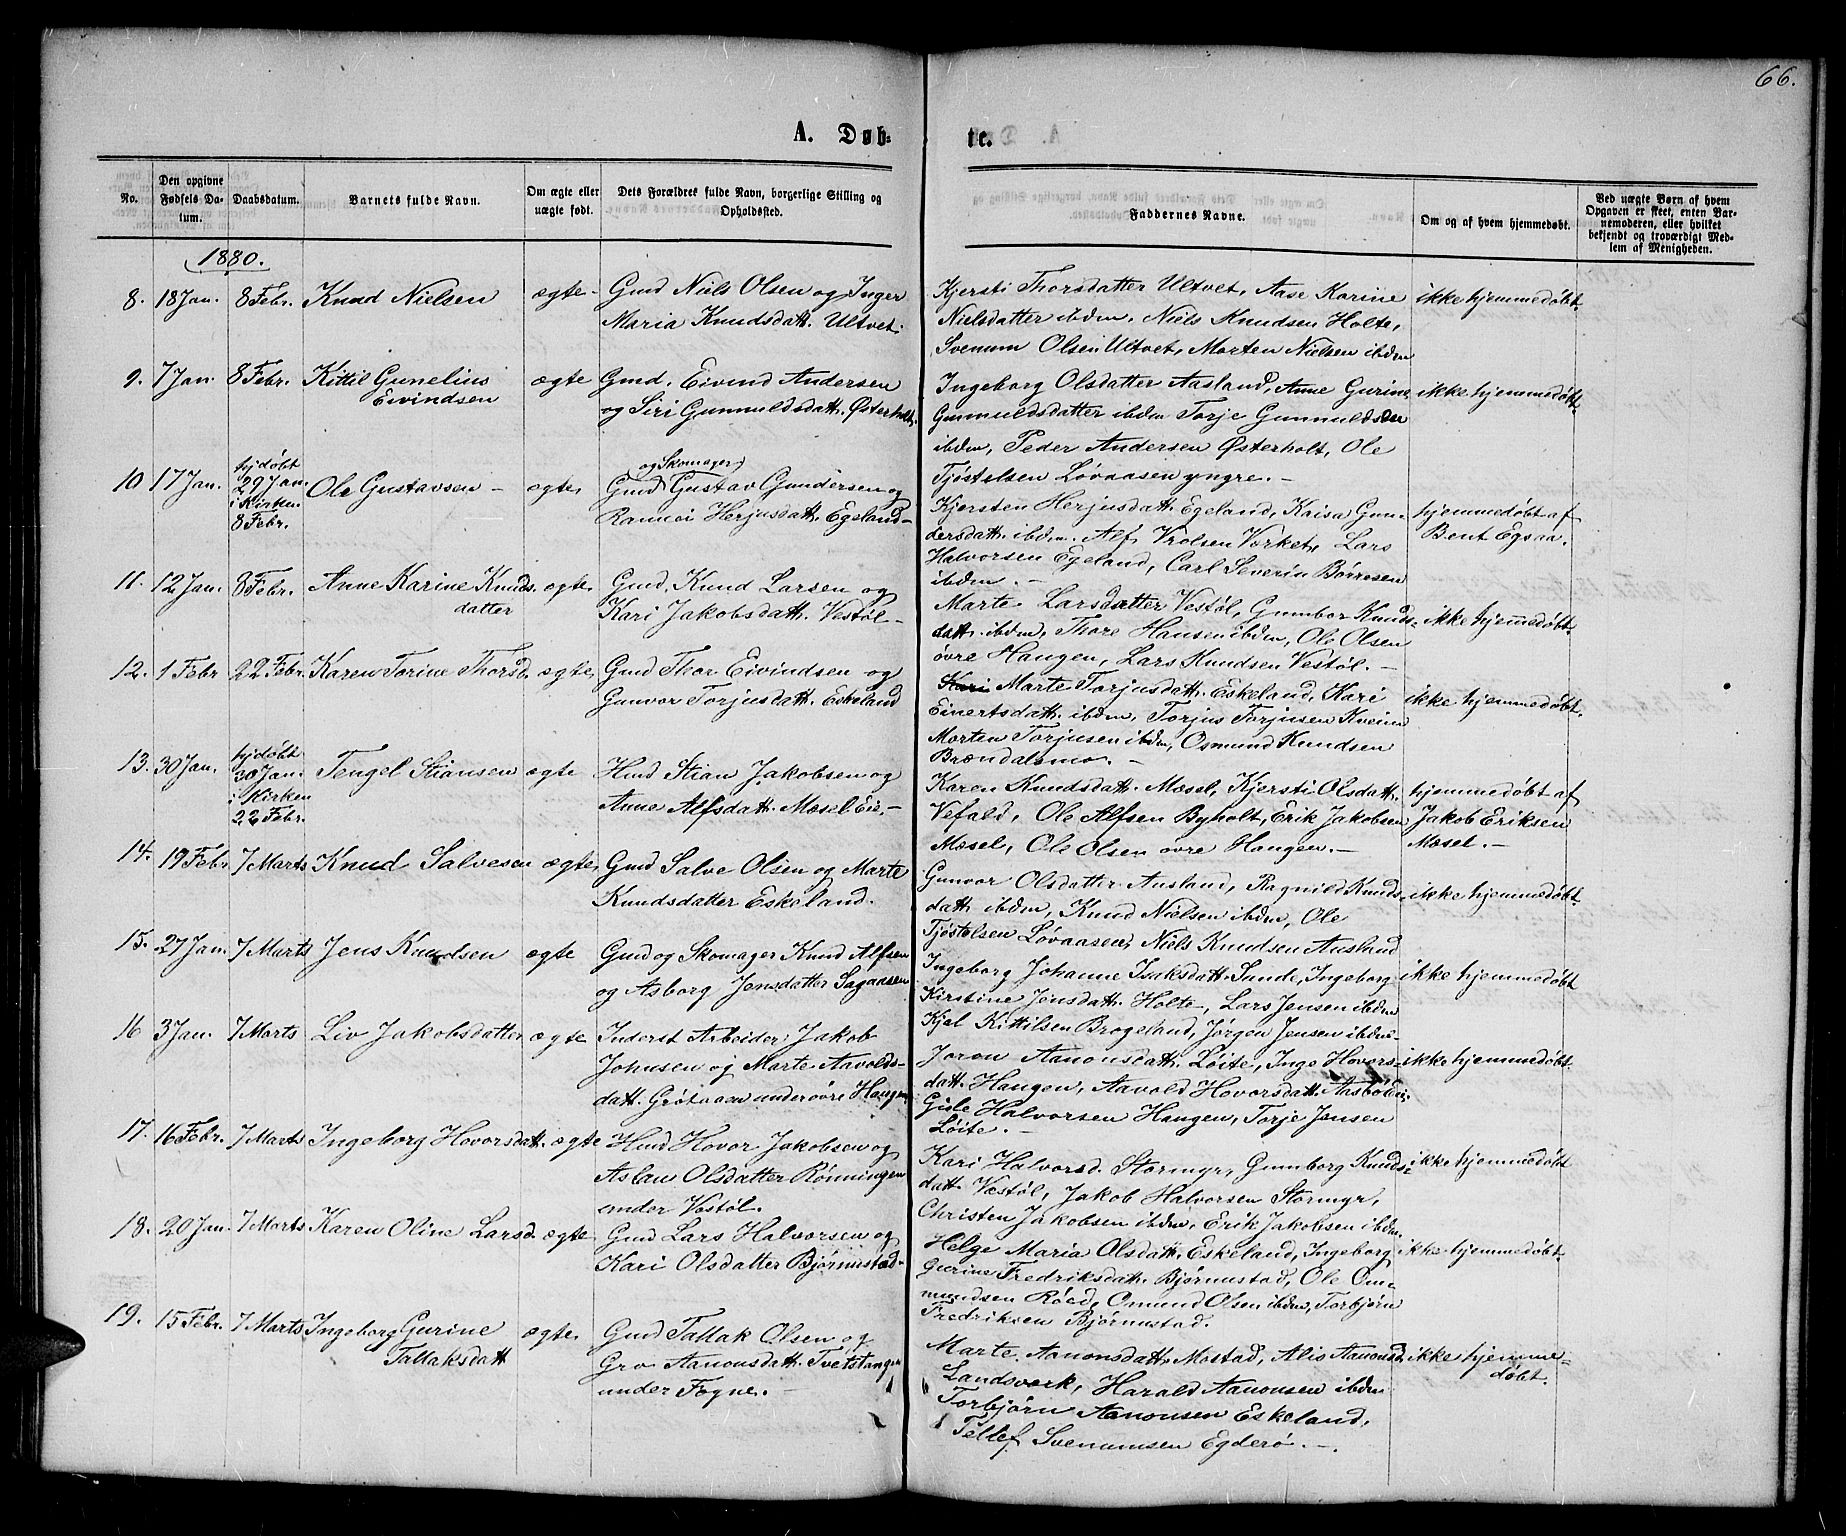 66.
A. Døb-
te.
No.
Den opgivne Fødsels Da-
tum.
Daabsdatum.
Barnets fulde Navn.
Om ægte eller
uægte født.
Dets Forældres fulde Navn, borgerlige Stilling og
Opholdssted.
Faddernes Navne.
Om og af hvem hjemmedøbt.
Ved uægte Børn af hvem
Opgaven er skeet, enten Bar-
nemoderen, eller hvilket
bekjendt og troværdigt Med-
lem af Menigheden.
1880.
8. 18 Jan. 8 Febr. Knud Nielsen ægte-
Gmd Niels Olsen og Inger
Maria Knudsdatt. Ultvet.
Kjersti Thorsdatter Ultvet, Aase Karine
Nielsdatter ibdm, Niels Knudsen Holte,
Svenum Olsen Ultvet, Morten Nielsen ibdm
ikke hjemmedøbt.
9. 7 Jan. 8 Febr. Kittil Gunelius
Eivindsen
ægte
Gmd. Eivind Andersen
og Siri Gunnuldsdatt. Østerholt.
Ingeborg Olsdatter Aasland, Anne Gurine
Gunnuldsdatter ibdm Torje Gunnuldsen
ibdm, Peder Andersen Østerholt, Ole
Tjøstelsen Løvaasen yngre. -
ikke hjemmedøbt.
10 17 Jan. hjdøbt
29 Jan.
i Kirken
8 Febr.
Ole Gustavsen - ægte
og Skomager
Gmd Gustav Gundersen og
Rannei Herjusdatt. Egeland-
Kjersten Herjusdatt. Egeland, Kaisa Gun-
dersdatt. ibdm. Alf Vrolsen Vorket, Lars
Halvorsen Egeland, Carl Severin Børresen
ibdm. -
hjemmedøbt af
Bent Egsaa.
11. 12 Jan. 8 Febr. Anne Karine Knuds-
datter
ægte
Gmd. Knud Larsen og
Kari Jakobsdatt. Vestøl-
Marte Larsdatter Vestøl, Gumbor Knuds-
datt. ibdm, Thore Hansen ibdm, Ole Olsen
øvre Haugen, Lars Knudsen Vestøl. -
ikke hjemmedøbt.
12. 1 Febr 22 Febr. Karen Torine Thorsd. ægte
Gmd Thor Eivindsen og
Gunvor Torjusdatt. Eskeland
Kari Marte Torjusdatt. Eskeland, Kari
Einertsdatt. ibdm, Torjus Torjusen
Morten Torjusen ibdm, Osmund Knudsen
Brændalsmo. -
ikke hjemmedøbt.
13. 30 Jan. hjdøbt
30 Jan.
i Kirken
22 Febr.
Tengel Stiansen ægte
Hmd Stian Jakobsen og
Anne Alfsdatt. Mosel Eie. -
Karen Knudsdatt. Mæsel, Kjersti Olsdatt.
Vefald, Ole Alfsen Byholt, Erik Jakobsen
Mæsel, Ole Olsen øvre Haugen. -
hjemmedøbt af
Jakob Eriksen
Mæsel. -
14. 19 Febr 7 Marts Knud Salvesen ægte
Gmd Salve Olsen og Marte
Knudsdatter Eskeland.
Gunvor Olsdatter Ausland, Ragnild Knuds-
datt ibdm, Knud Nielsen ibdm, Ole
Tjøstelsen Løvaasen, Niels Knudsen Ausland
ikke hjemmedøbt
15. 27 Jan. 7 Marts Jens Knudsen ægte
Gmd og Skomager Knud Alfsen
og Asborg Jensdatter Sagaasen
Ingeborg Johanne Isaksdatt. Sunde, Ingeborg
Kirstine Jensdatt. Holte, Lars Jensen ibdm
Kjel Kittilsen Brogeland, Jørgen Jensen ibdm.
ikke hjemmedøbt
16 3 Jan. 7 Marts Liv Jakobsdatter ægte
Inderst Arbeider Jakob
Johnsen og Marte Aavolds-
datt. Grøtaaen under øvre Haugen
Joron Aanonsdatt. Løite, Inge Hovors-
datt. Haugen, Aavold Hovorsdatt. Aasbøden,
Gjule Halvorsen Haugen, Torje Jensen
Løite. -
ikke hjemmedøbt.
17. 16 Febr. 7 Marts Ingeborg Hovorsdatt. ægte
Hmd Hovor Jakobsen og
Aslau Olsdatter Rønningen
under Vestøl.
Kari Halvorsd. Stormyr, Gumborg Knuds-
datt. Vestøl, Jakob Halvorsen Stormyr,
Christen Jakobsen ibdm, Erik Jakobsen ibdm.
ikke hjemmedøbt
18. 20 Jan. 7 Marts Karen Oline Larsd. ægte
Gmd Lars Halvorsen og
Kari Olsdatter Bjørnustad-
Helge Maria Olsdatt. Eskeland, Ingeborg
Gurine Fredriksdatt. Bjørnustad, Ole Om-
mundsen Røed, Omund Olsen ibdm, Torbjørn
Fredriksen Bjørnustad.
ikke hjemmedøbt.
19. 15 Febr. 7 Marts Ingeborg Gurine
Tallaksdatt
ægte
Gmd Tallak Olsen og
Gro Aanonsdatt. Tvetstangen
under Fogne. -
Marte Aanonsdatt. Mostad, Alis Aanonsd.
Landsverk, Harald Aanonsen ibdm
Torbjørn Aanonsen Eskeland,
Tellef Svenumsen Egderø. -
ikke hjemme-
døbt.